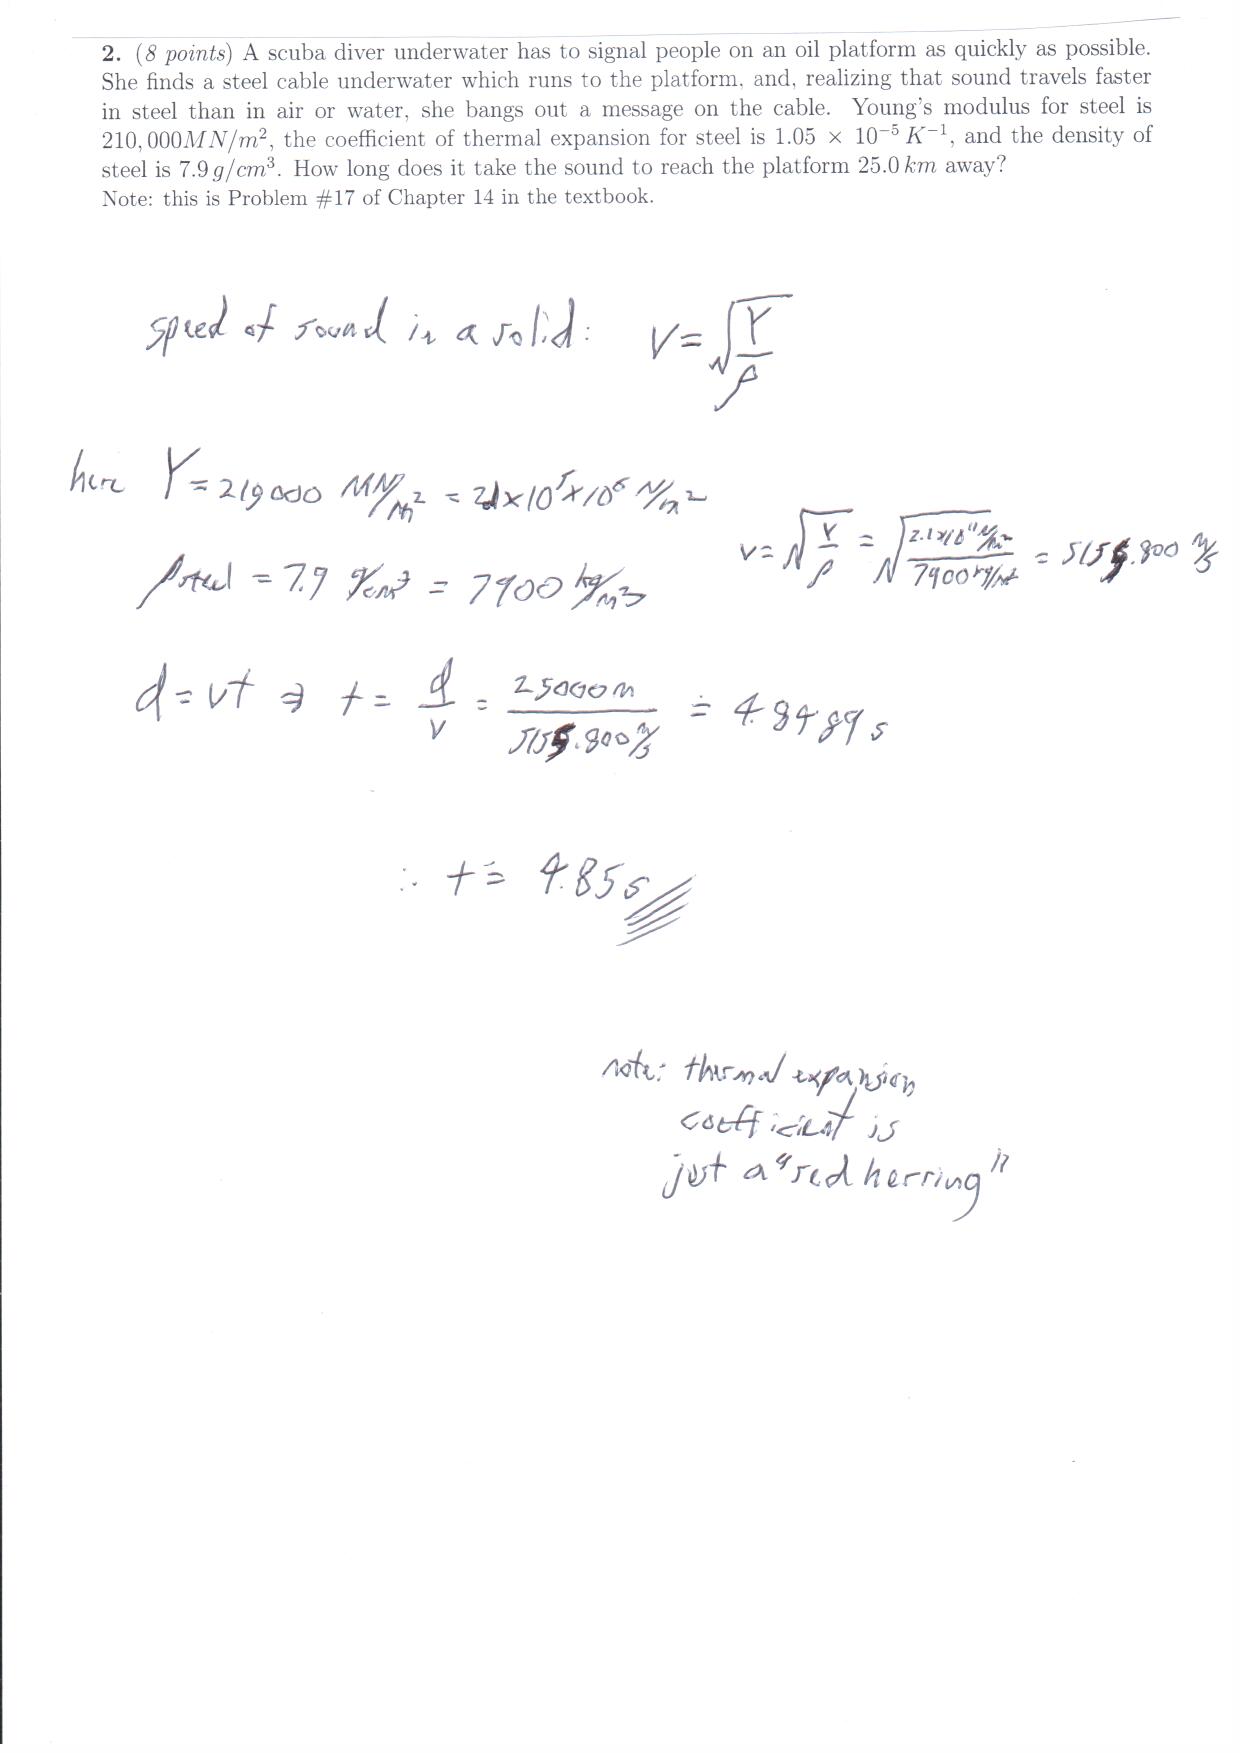 2. (8 points) A scuba diver underwater has to signal people on an oil platform as quickly as possible.
She finds a steel cable underwater which runs to the platform, and, realizing that sound travels faster
in steel than in air or water, she bangs out a message on the cable. Young's modulus for steel is
210,000MN/m², the coefficient of thermal expansion for steel is 1.05 × 10⁻⁵ K⁻¹, and the density of
steel is 7.9 g/cm³. How long does it take the sound to reach the platform 25.0 km away?
Note: this is Problem #17 of Chapter 14 in the textbook.
speed of sound in a solid: V = √(Y/ρ)
here Y = 210,000 MN/m² = 2.1×10⁵×10⁶ N/m²
v = √(Y/ρ) = √(2.1×10¹¹ N/m² / 7900 kg/m³) = 5155.800 m/s
ρsteel = 7.9 g/cm³ = 7900 kg/m³
d = vt ⇒ t = d/v = 25000m / 5155.800 m/s ≐ 4.8489 s
∴ t ≐ 4.85 s
note: thermal expansion
coefficient is
just a "red herring"